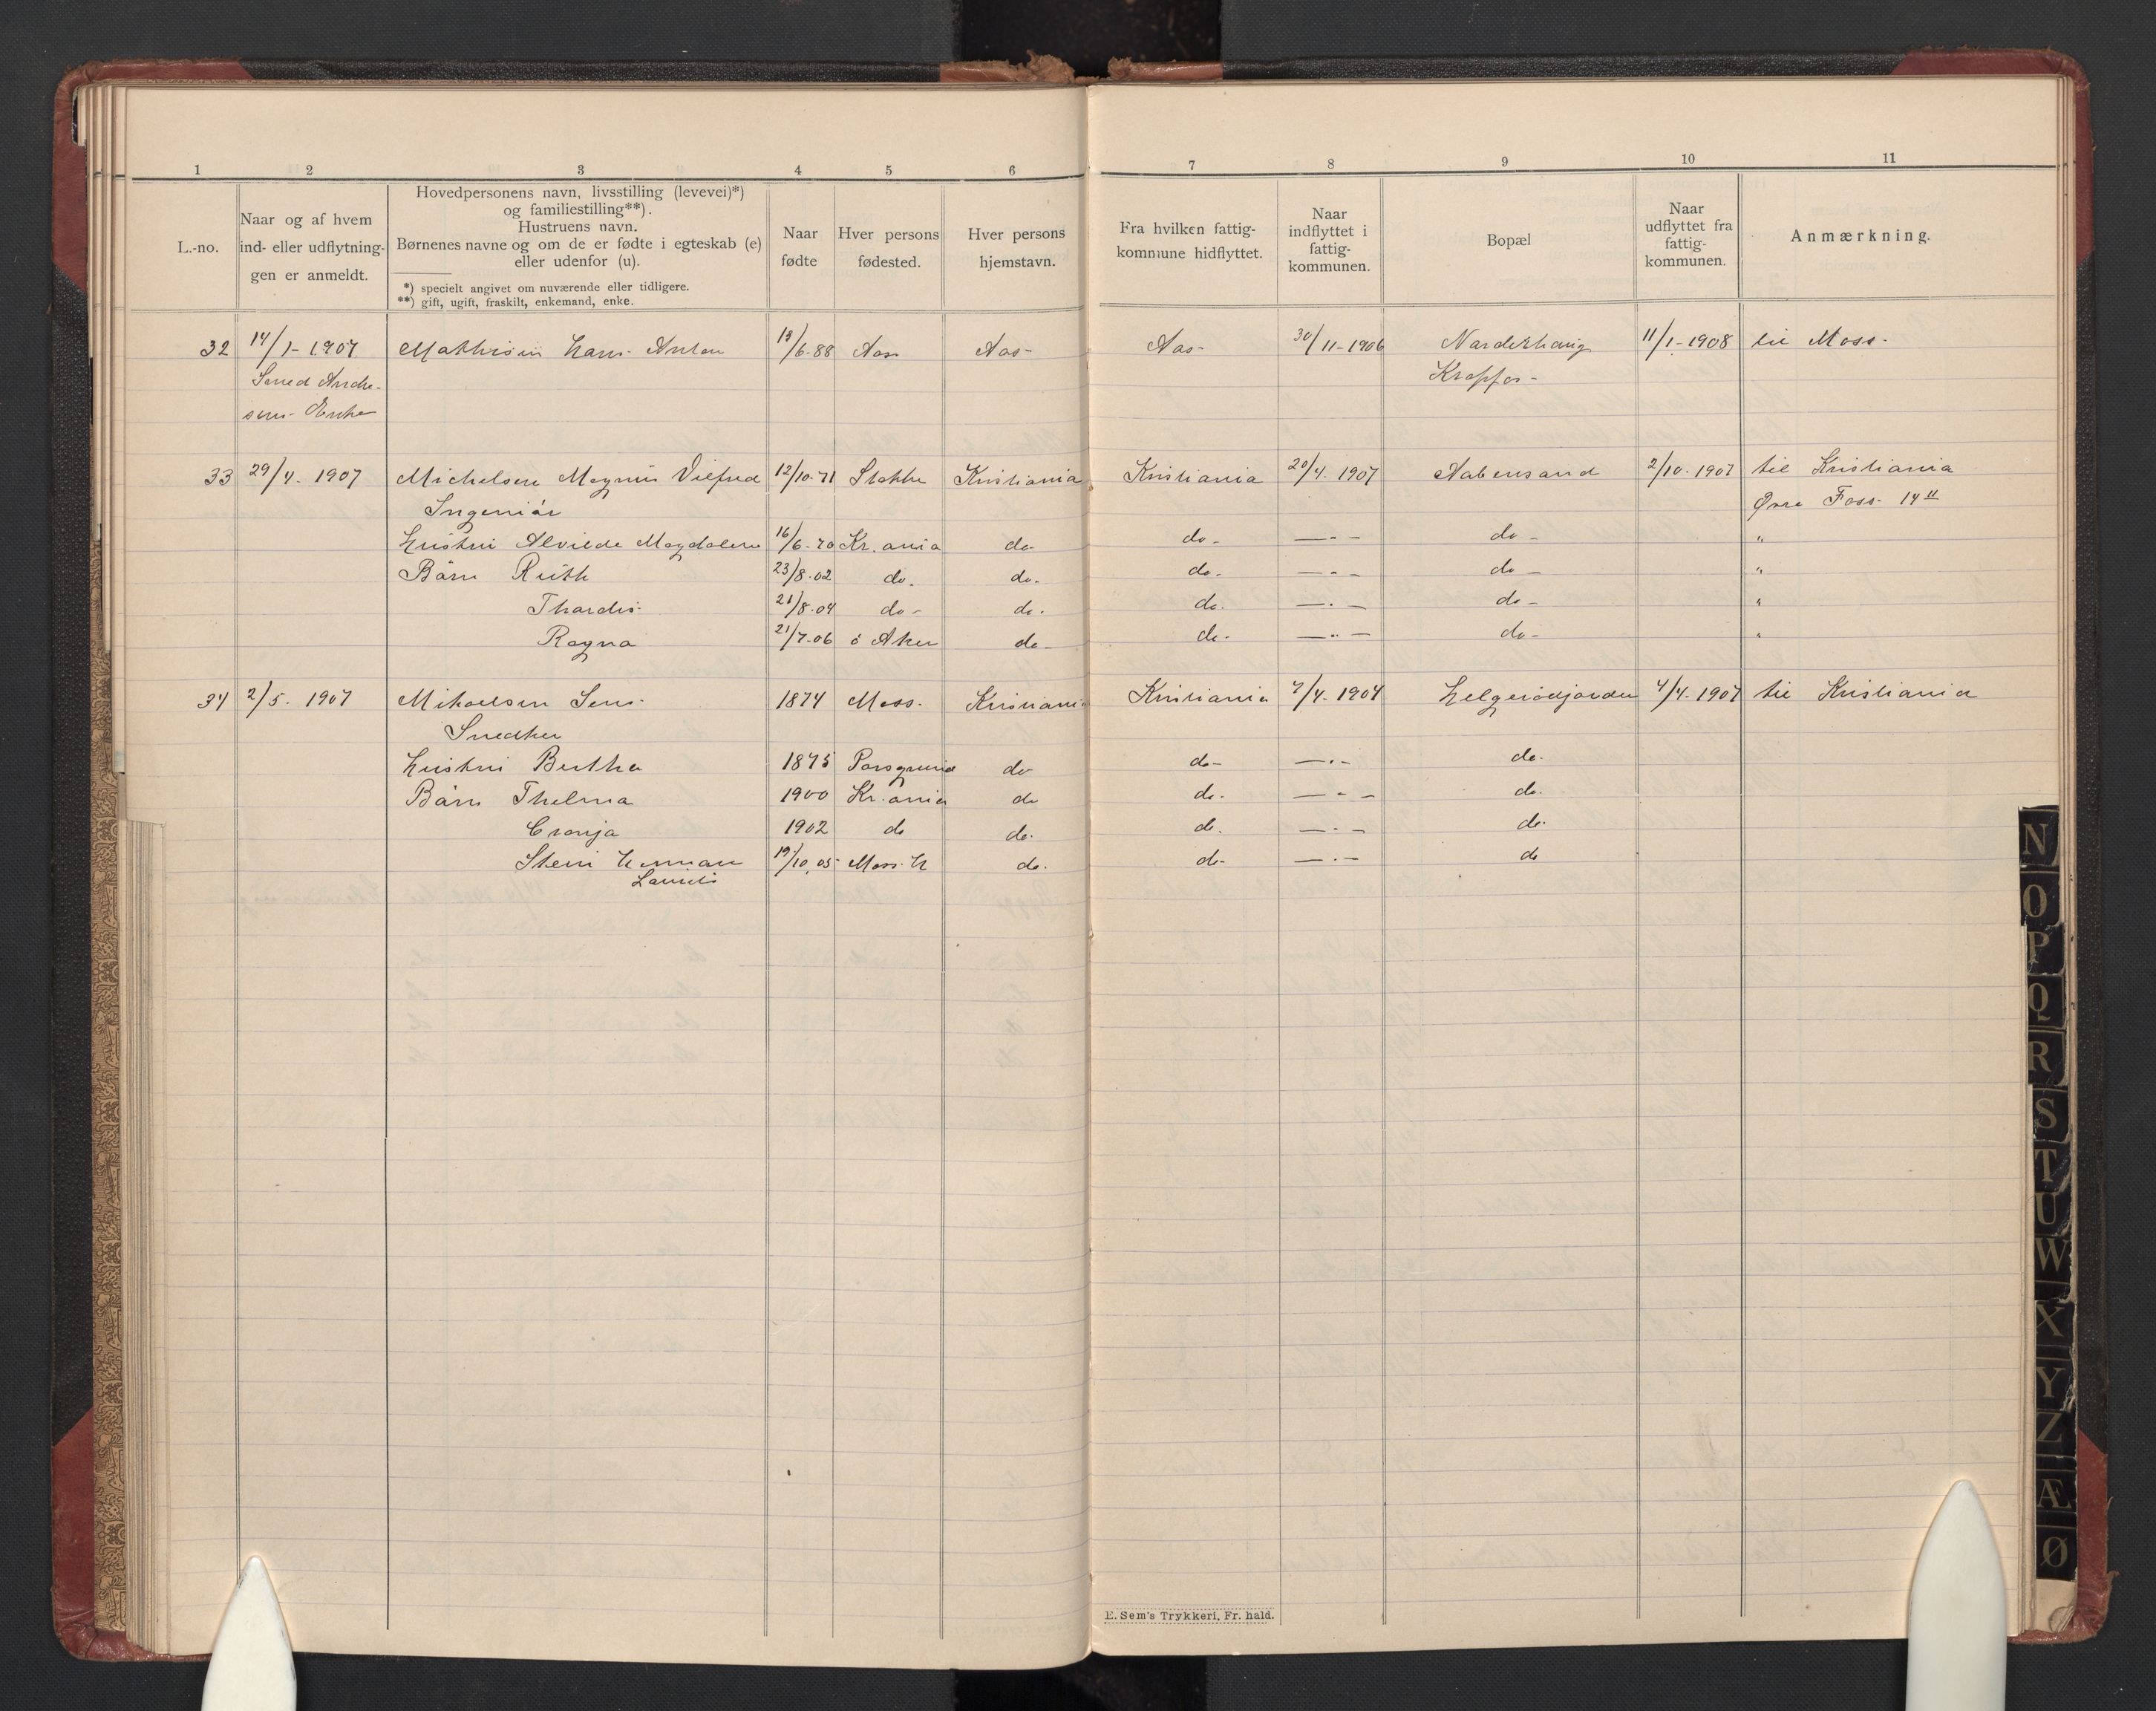 1 2 3 4 5 6 7 8 9 10 11
L.-no.
Naar og af hvem
ind- eller udflytnin-
gen er anmeldt.
Hovedpersonens navn, livsstilling (levevei)*)
og familiestilling**).
Hustruens navn.
Børnenes navne og om de er fødte i egteskab (e)
eller udenfor (u).
*) specielt angivet om nuværende eller tidligere.
**) gift, ugift, fraskilt, enkemand, enke.
Naar
fødte
Hver persons
fødested.
Hver persons
hjemstavn.
Fra hvilken fattig-
kommune hidflyttet.
Naar
indflyttet i
fattig-
kommunen.
Bopæl
Naar
udflyttet fra
fattig-
kommunen.
Anmærkning.
32 14/1-1907 Mathisen Hans Anton 13/6-88 Aas Aas- Aas- 30/11-1906 11/1-1908 til Moss-
Smed Andre-
sens- Enke
Kropfos-
33 29/4. 1907 Michelsen Magnus Vilfred 12/10-71 Stokke Kristiania Kristiania 20/4. 1907 Aabensand 2/10. 1907 til Kristiania
Ingeniör Øvre Foss. 14 II
Hustru Alvilde Magdalene 16/6-70 Kr.ania do- do- —.- do- "
Börn Ruth 23/8-02 do. do. do. —.- do- "
Thordis 21/8-04 do- do. do. —.- do- "
Ragna 21/7-06 ö Aker do- do- —.- do- "
34 2/5. 1907 Mikaelsen Jens 1874 Moss. Kristiania Kristiania 4/4. 1904 Helgerödjordet 4/4. 1907 til Kristiania
Snedker
Hustru Bertha 1875 Porsgrund do do- —.- do.
Börn Thelma 1900 Kr.ania do do. —.- do.
Cronja 1902 do do. do. —.- do.
Stein Herman 19/10.05 Moss. do. do- —.- do
N
O
P
Q
R
S
T
U
W
X
Y
Z
Æ
Ø
E. Sem's Trykkeri, Fr. hald.